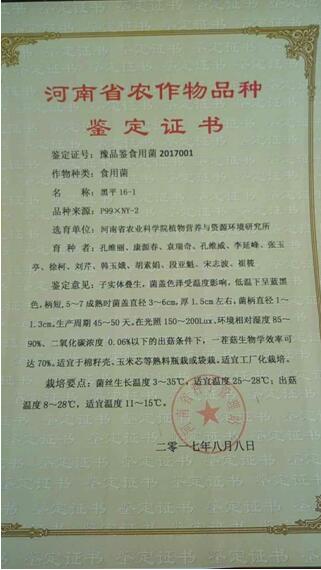 河南省农作物品种
鉴定证书
鉴定证号：豫品鉴食用菌2017001
作物种类：食用菌
名　　称：黑平16-1
品种来源：P99×NY-2
选育单位：河南省农业科学院植物营养与资源环境研究所
育 种 者：孔维丽、康源春、袁瑞奇、孔维威、李延峰、张玉
亭、徐柯、刘芹、韩玉娥、胡素娟、段亚魁、宋志波、崔筱
鉴定意见：子实体叠生，菌盖色泽受温度影响，低温下呈蓝黑
色，柄短，5～7成熟时菌盖直径3～6cm，厚1.5cm左右，菌柄直径1～
1.3cm，生产周期45～50天。在光照150～200Lux、环境相对湿度85～
90%、二氧化碳浓度0.06%以下的出菇条件下，一茬菇生物学效率可
达70%。适宜于棉籽壳、玉米芯等熟料瓶栽或袋栽，适宜工厂化栽培。
栽培要点：菌丝生长温度3～35℃，适宜温度25～28℃；出菇
温度8～28℃，适宜温度11～15℃。
二〇一七年八月八日